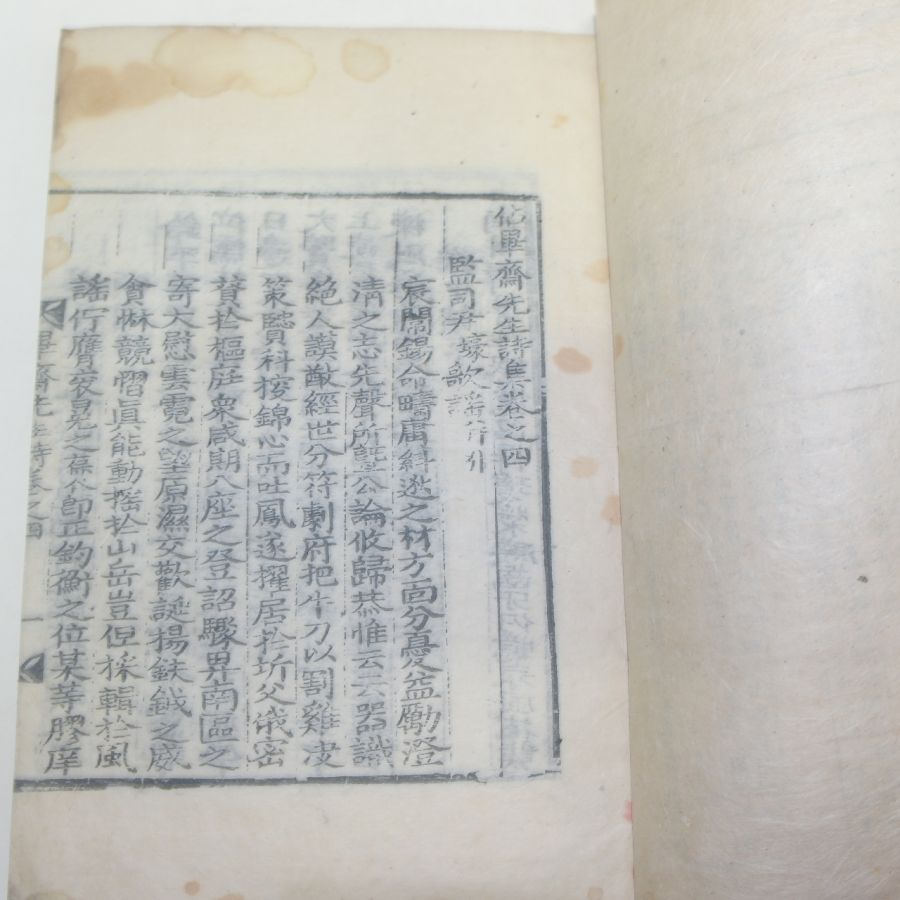 佔畢齋先生詩集卷之四
監司尹壕歌謠并引
宸闈錫命疇庸緯逖之材方面分憂益勵澄
清之志先聲所曁公論攸歸恭惟云云器識
絕人謨猷經世分符劇府把牛刀以割雞决
策賢科掞錦心而吐鳳遂擢居於圻父俄密
贊於樞庭衆咸期八座之登詔驟畀南區之
寄大慰雲霓之望原濕交歡誕揚鈇鉞之威
貪惏競慴眞能動搖於山岳豈但採輯於風
謠佇膺袞冕之褒卽正鈞衡之位某等膠庠
畢齋先生詩卷之四